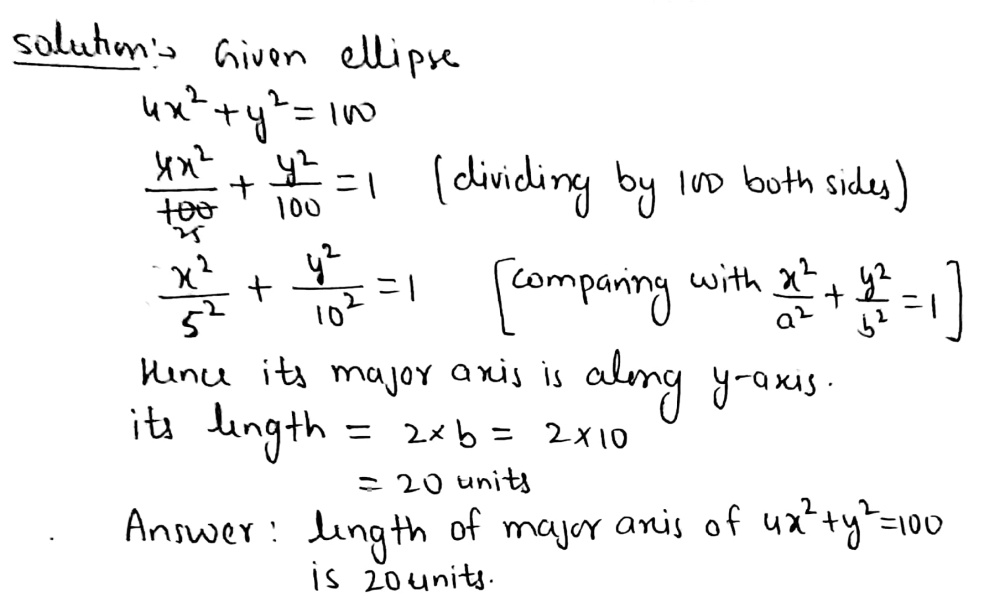 solution:→ Given ellipse
4x² + y² = 100
4x²/100 + y²/100 = 1 (dividing by 100 both sides)
25
x²/5² + y²/10² = 1 [comparing with x²/a² + y²/b² = 1]
Hence its major axis is along y-axis.
its length = 2×b = 2×10
= 20 units
Answer: length of major axis of 4x²+y²=100
is 20 units.